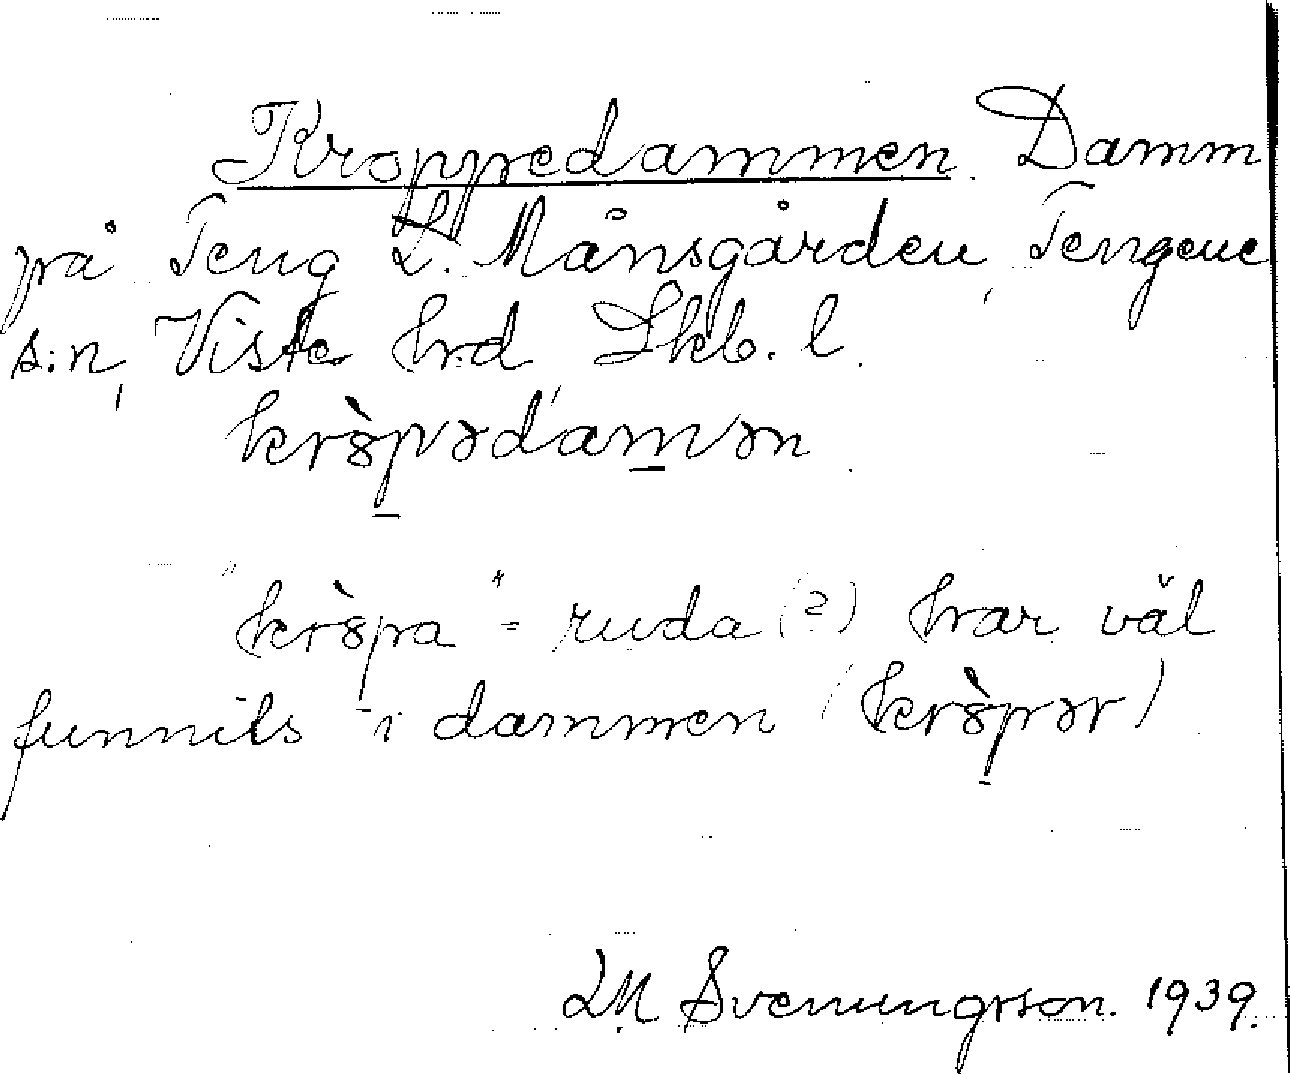 Kroppedammen. Damm
på Teng L. Månsgården, Tengene
s:n, Viste hrd Skb. l.
kr8̀pədamən.
"kr8̀pa" = ruda (?) har väl
funnits i dammen (kr8̀pər)
LM Svenungsson. 1939.